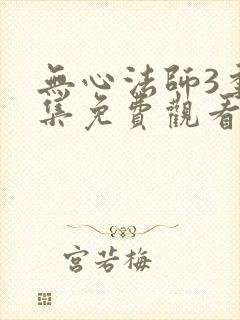 無心法師3全
集免費觀看
宮若梅